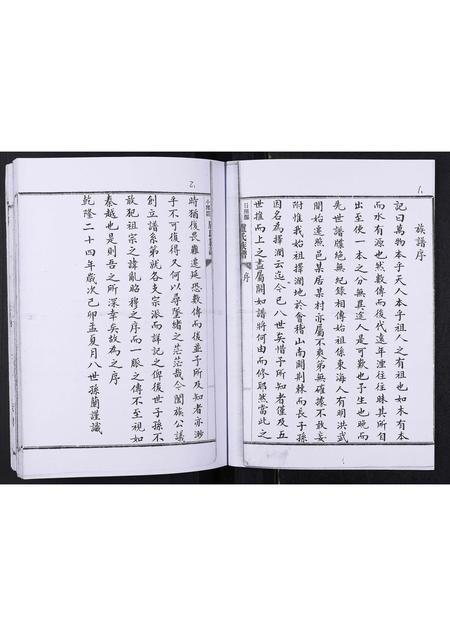 1.
族譜序
記曰萬物本乎天人本乎祖人之有祖也如木有本
而水有源也然數傳而後代遠年湮往往昧其所自
出至使一本之分無異途人是可歎也予生也晚而
先世譜牒絶無紀錄相傳始祖係東海人有明洪武
間始遷照邑某居某村亦屬不爽第無確據不敢妄
附惟我始祖擇澗地於會稽山南闢荆棘而長子孫
因名為擇澗云迄今已八世矣惜予所知者僅及五
世推而上之盡屬闕如譜將何由而修耶然當此之
日照郡
氏族譜
序
2.
時猶復畏難遷延恐數傳而後並予所及知者亦渺
乎不可復得又何以尋墜緒之茫茫哉今闔族公議
創立譜系第就各支宗派而詳記之俾後世子孫不
故犯祖宗之諱亂昭穆之序而一脈之傳不至視如
秦越也是則吾之所深幸矣故為之序
乾隆二十四年歲次己卯孟夏月八世孫蘭謹識